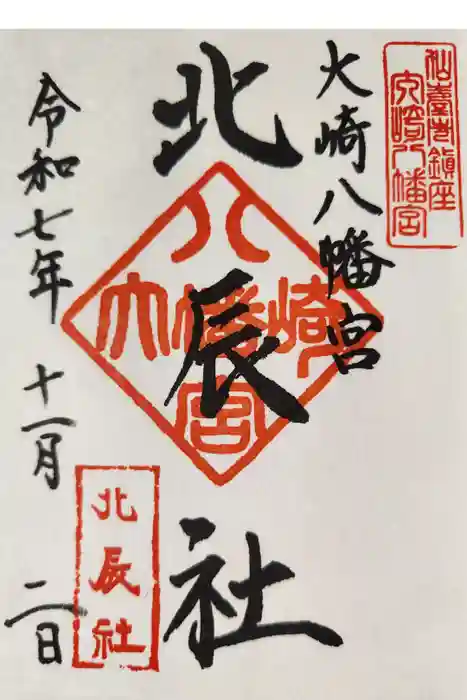 仙臺市鎮座
大崎八幡宮
大崎八幡宮
北辰社
大崎八幡宮
令和七年 十一月 二日
北辰社